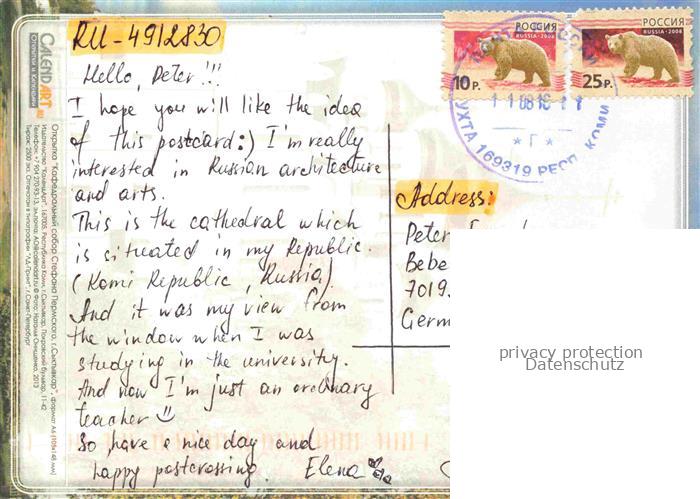 RU-4912830
Hello, Peter!!!
I hope you will like the idea
of this postcard:) I'm really
interested in Russian architecture
and arts.
This is the cathedral which
is situated in my Republic.
(Komi Republic, Russia).
And it was my view from
the window when I was
studying in the university.
And now I'm just an ordinary
teacher
So have a nice day and
happy postcrossing. Elena
РОССИЯ
RUSSIA · 2008
10 Р.
РОССИЯ
RUSSIA · 2008
25 Р.
УХТА 169319 РЕСП. КОМИ
* Г *
Address:
Peter
Bebe
7019
Germ
privacy protection
Datenschutz
CALENDART.RU
Открытки и Календари
Открытка "Кафедральный собор Стефана Пермского, г.Сыктывкар", формат А6 (105х148 мм)